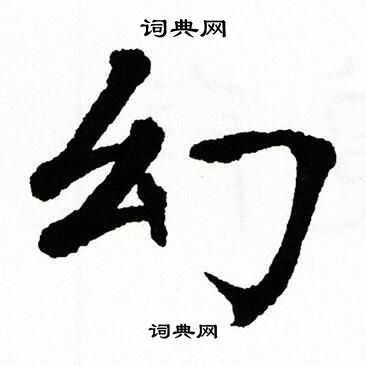 词典网
幻
词典网